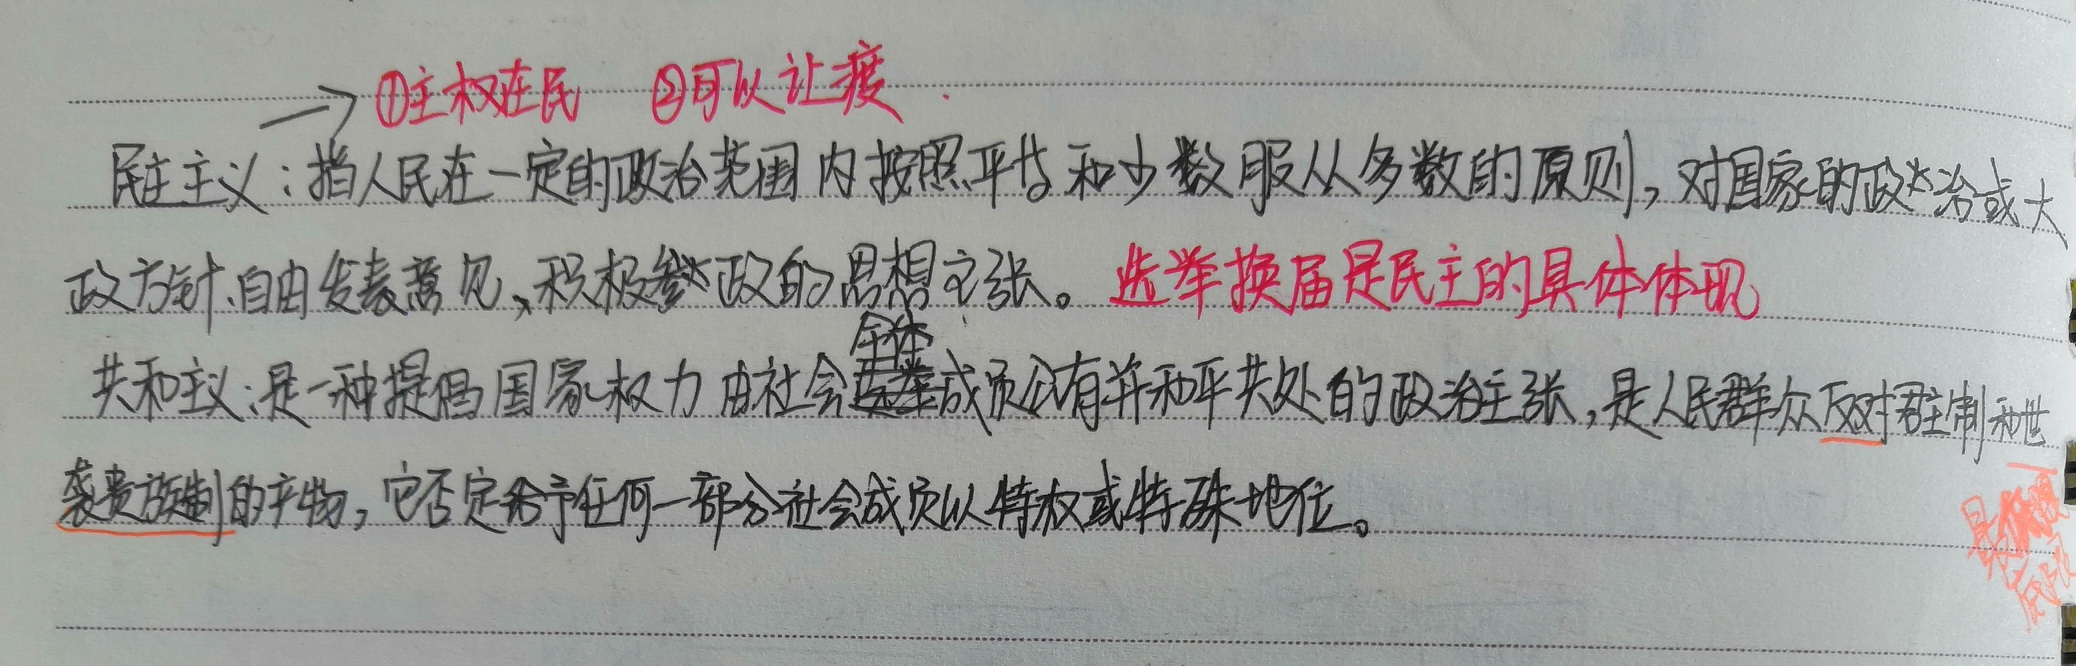 →①主权在民 ②可以让度
民主主义：指人民在一定的政治范围内按照平等和少数服从多数的原则，对国家的政治或大
政方针、自由发表意见，积极参政的思想主张。选举换届是民主的具体体现
全体
共和主义：是一种提倡国家权力由社会成员公有并和平共处的政治主张，是人民群众反对君主制和世
袭贵族制的产物，它否定给予任何一部分社会成员以特权或特殊地位。